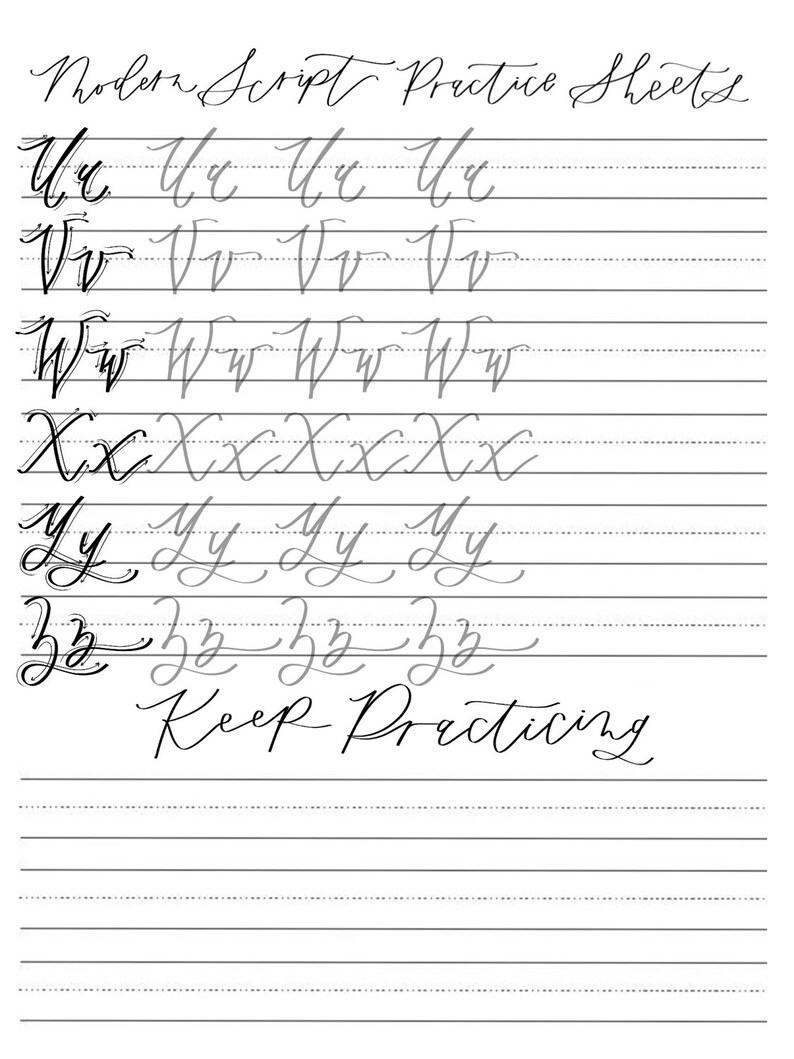 Modern Script Practice Sheets
Uu Uu Uu Uu
Vv Vv Vv Vv
Ww Ww Ww Ww
Xx Xx Xx Xx
Yy Yy Yy Yy
Zz Zz Zz Zz
Keep Practicing